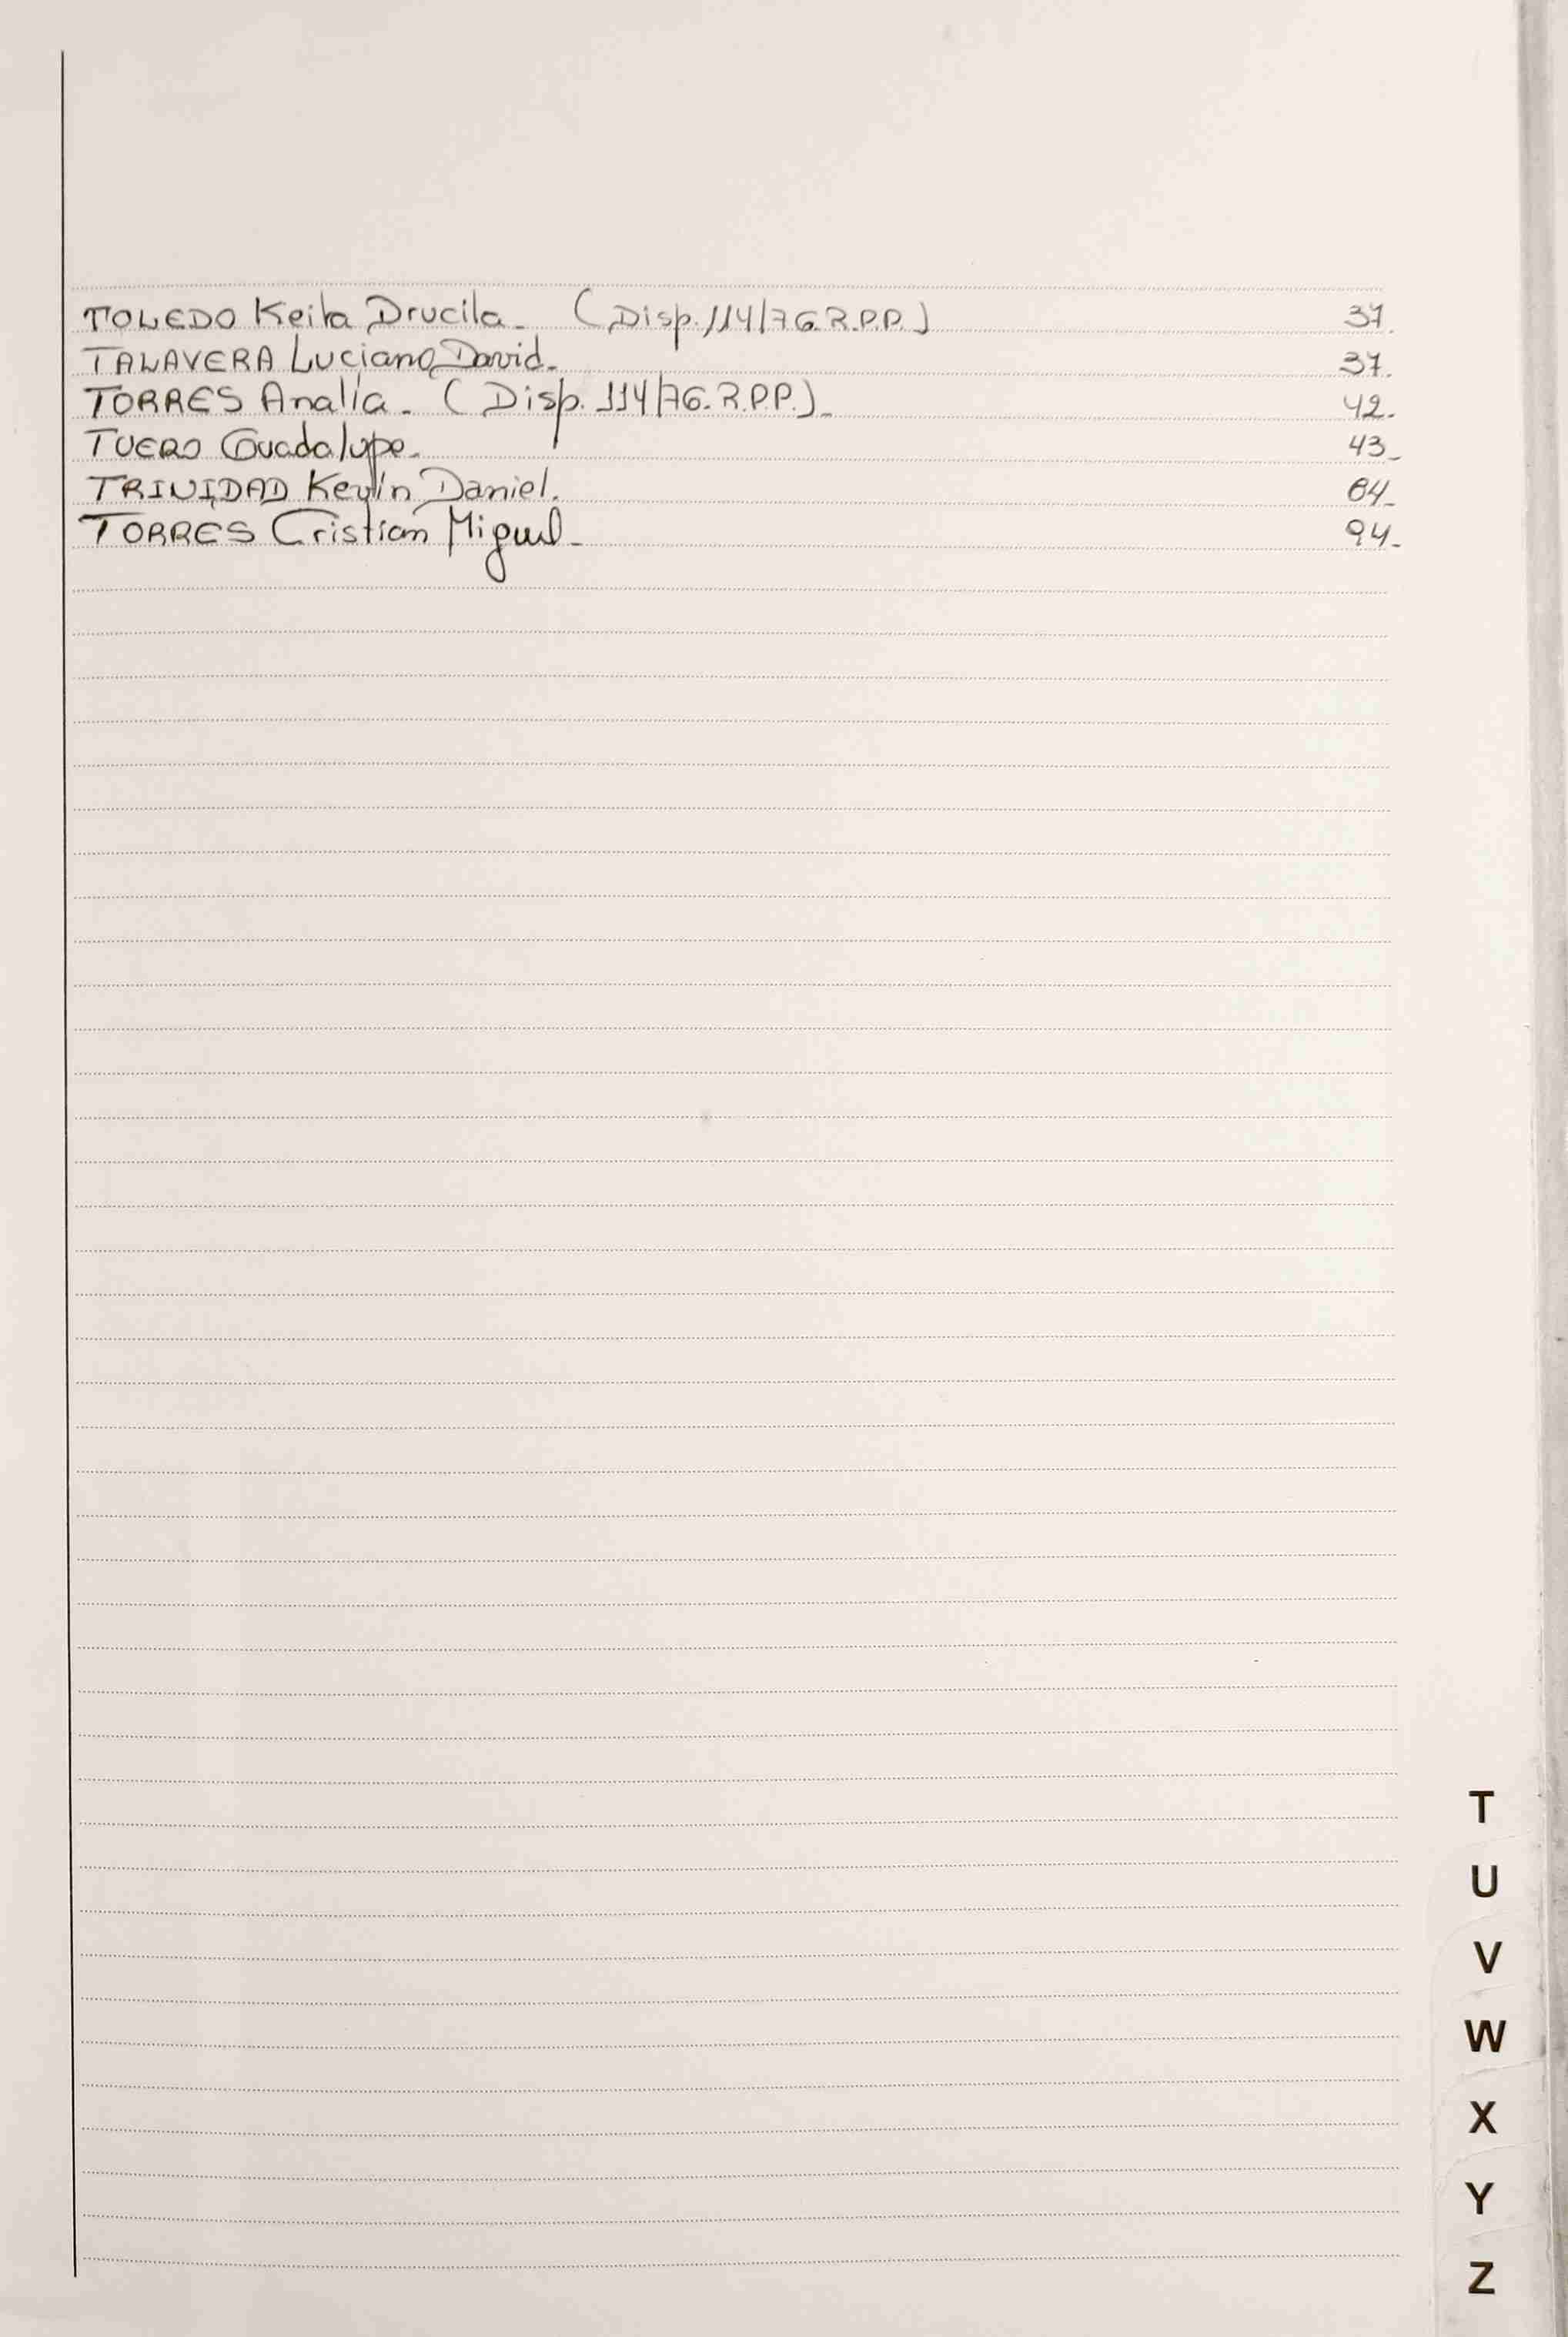 TOLEDO Keila Drucila. (Disp. 114/76. R.P.P.) 37.
TALAVERA Luciano David. 37.
TORRES Analía. (Disp. 114/76. R.P.P.). 42.
TUERO Guadalupe. 43.
TRINIDAD Keylin Daniel. 64.
TORRES Cristian Miguel. 94.
T
U
V
W
X
Y
Z